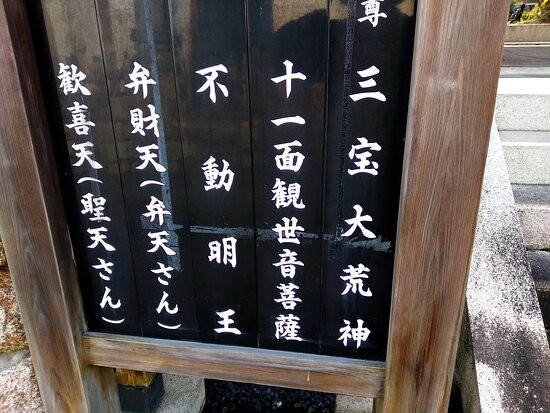 尊三宝大荒神
十一面観世音菩薩
不動明王
弁財天(弁天さん)
歓喜天(聖天さん)